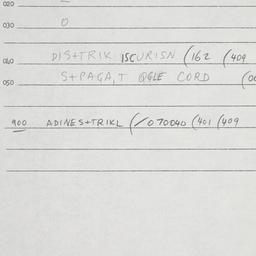 020
030 0
DIS+TRIK ISCURISN (162 (409
040
S+PAGA,T @GLE CORD (00
050
900 ADINES+TRIKL (/070040 (401 (409